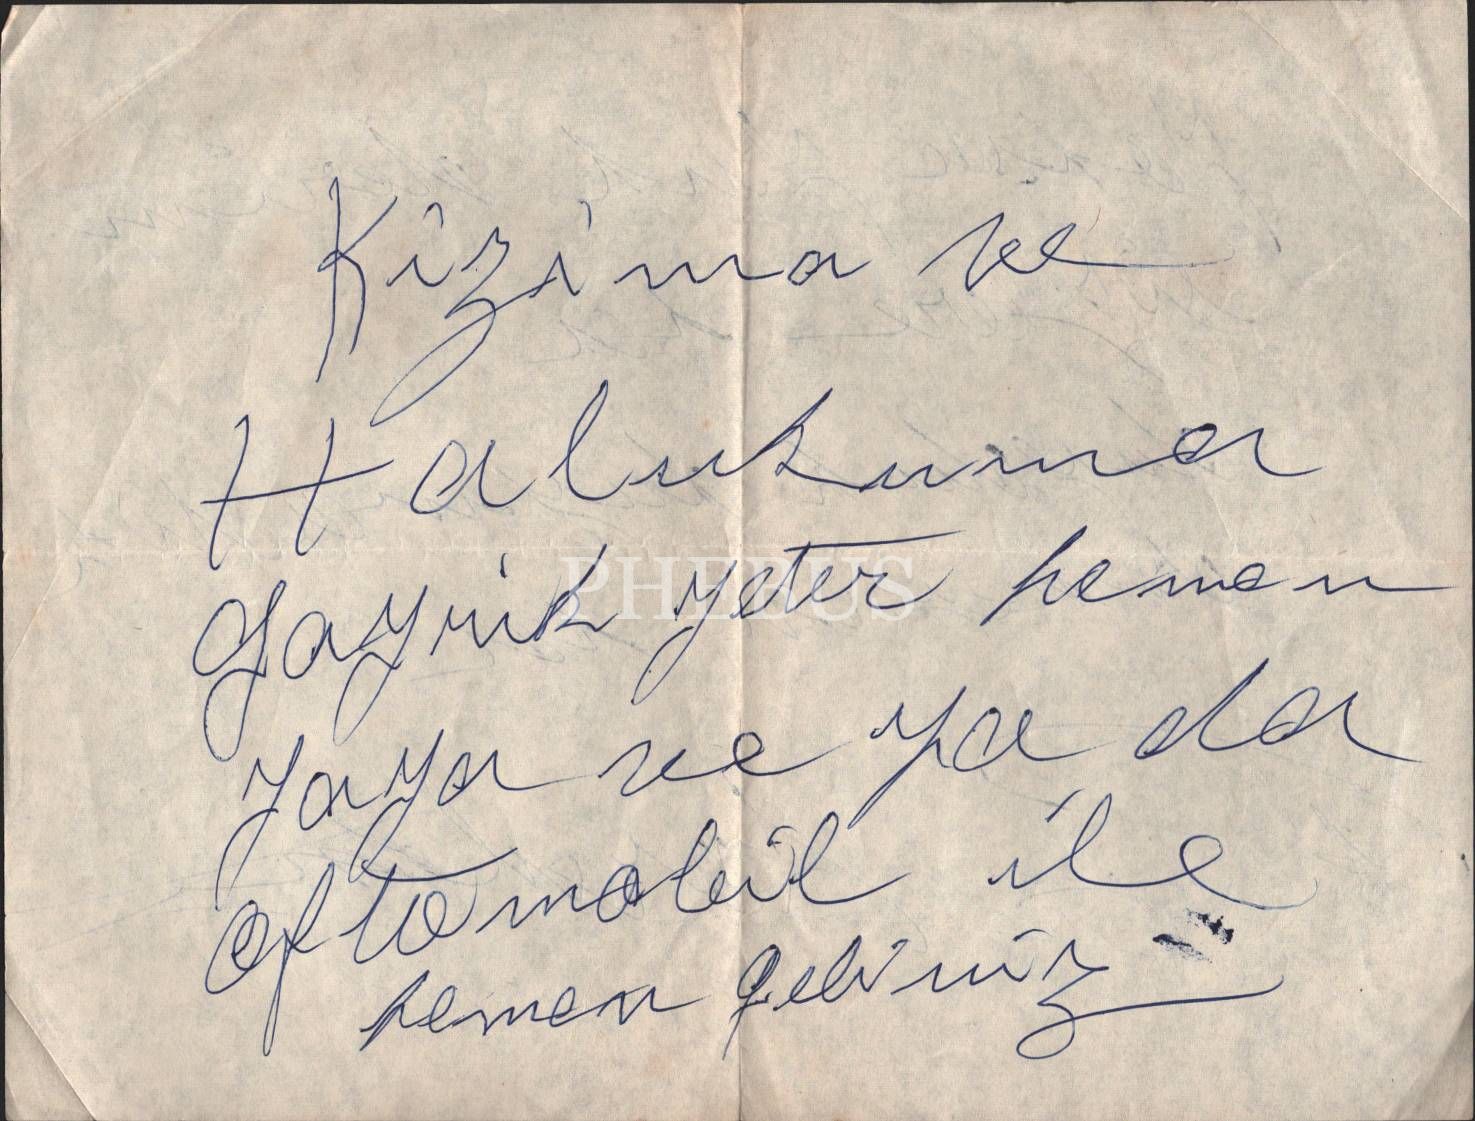 Kizima ve
Halukuma
gayrik yeter hemen
yaya ve ya da
oftomobil ile
hemen geliniz
PHEBUS